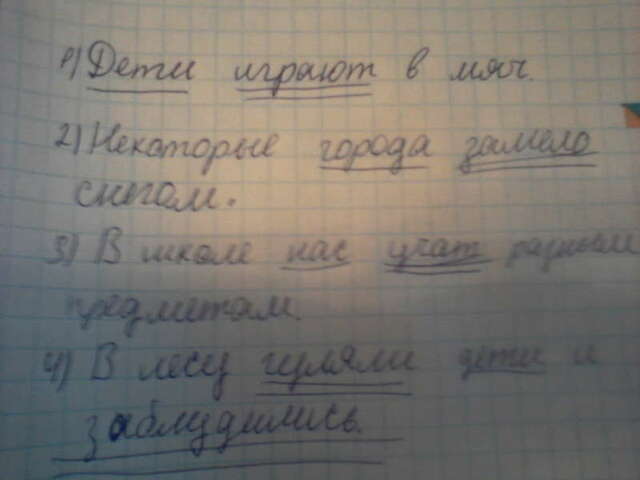 1) Дети играют в мяч.
2) Некоторые города замело
снегом.
3) В школе нас учат разным
предметам.
4) В лесу гуляли дети и
заблудились.